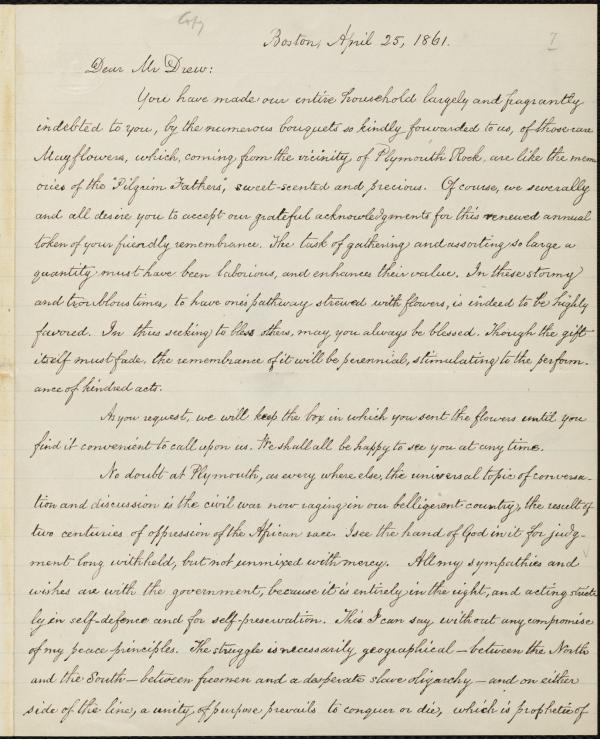 Copy
7
Boston, April 25, 1861.
Dear Mr Drew:
You have made our entire household largely and fragrantly
indebted to you, by the numerous bouquets so kindly forwarded to us, of those rare
Mayflowers, which, coming from the vicinity of Plymouth Rock, are like the mem-
ories of the "Pilgrim Fathers", sweet-scented and precious. Of course, we severally
and all desire you to accept our grateful acknowledgments for this renewed annual
token of your friendly remembrance. The task of gathering and assorting so large a
quantity must have been laborious, and enhances their value. In these stormy
and troublous times, to have one's pathway strewed with flowers, is indeed to be highly
favored. In thus seeking to bless others, may you always be blessed. Though the gift
itself must fade, the remembrance of it will be perennial, stimulating to the perform-
ance of kindred acts.
As you request, we will keep the box in which you sent the flowers until you
find it convenient to call upon us. We shall all be happy to see you at any time.
No doubt at Plymouth, as every where else, the universal topic of conversa-
tion and discussion is the civil war now raging in our belligerent country, the result of
two centuries of oppression of the African race. I see the hand of God in it for judg-
ment long withheld, but not unmixed with mercy. All my sympathies and
wishes are with the government, because it is entirely in the right, and acting strict-
ly in self-defence and for self-preservation. This I can say, without any compromise
of my peace principles. The struggle is necessarily geographical – between the North
and the South – between freemen and a desperate slave oligarchy – and on either
side of the line, a unity of purpose prevails to conquer or die, which is prophetic of